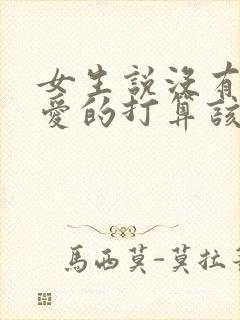 女生說沒有
愛的打算該
馬西莫-莫拉